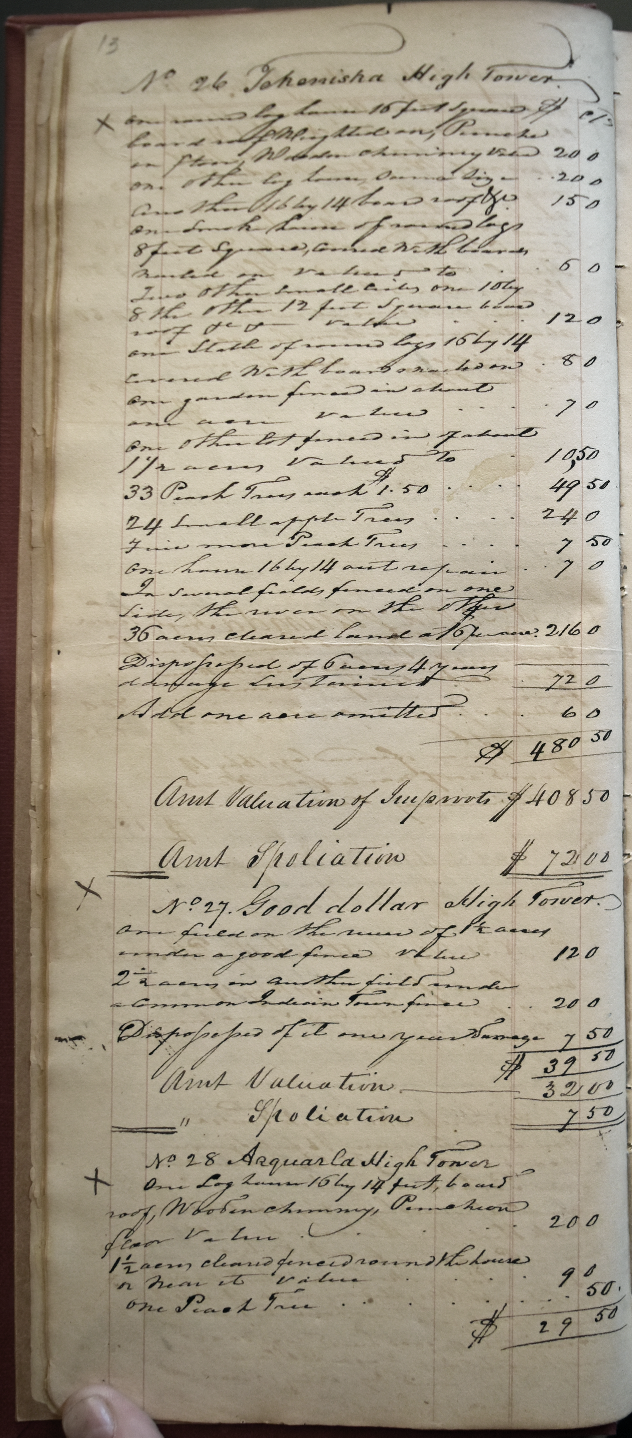 13
No 26 Tekeniska High Tower
x one round log house 16 feet Square $ cts
board roof Weighted on, Puncheon
on floor, Wooden chimney Value 20 0
one other log house Same Size .. 20 0
another 16 by 14 board roof &c 15 0
one Smoke house of round logs
8 feet Square, Covered With boards
nailed on Valued to . . 6 0
Two other Small cribs one 10 by
8 the other 12 feet Square board
roof &c &c Value . . . 12 0
one Stable of round logs 16 by 14
covered With boards nailed on . 8 0
one garden fenced in about
one acre Value . . . 7 0
one other lot fenced in of about
1 1/2 acres Valued to . 10 50
33 Peach Trees each $1.50 . . 49 50
24 Small apple Trees . . . . 24 0
Five more Peach Trees . . . 7 50
one house 16 by 14 out repair . 7 0
In several fields fenced on one
Side, the river on the other
36 acres cleared land at 6 $ pr acre. 216 0
Dispossessed of 6 acres 4 years
damage Sustained 72 0
Add one acre omitted . . . 6 0
$ 480 50
Amt Valuation of Improvts $ 408 50
Amt Spoliation $ 72 00
x No 27. Good dollar High Tower.
one field on the river of 1 1/2 acres
under a good fence Value 12 0
2 1/2 acres in another field under
a Common Indian Town fence . . 20 0
Dispossessed of it one year Damage 7 50
$ 39 50
Amt Valuation 32 00
" Spoliation 7 50
No 28 Arquarla High Tower
x one Log house 16 by 14 feet, board
roof, Wooden chimney, Puncheon
floor Value . . . 20 0
1 1/2 acres cleared fenced round the house
or near it Value . . . . 9 0
one Peach Tree . . . . . . 50.
$ 29 50